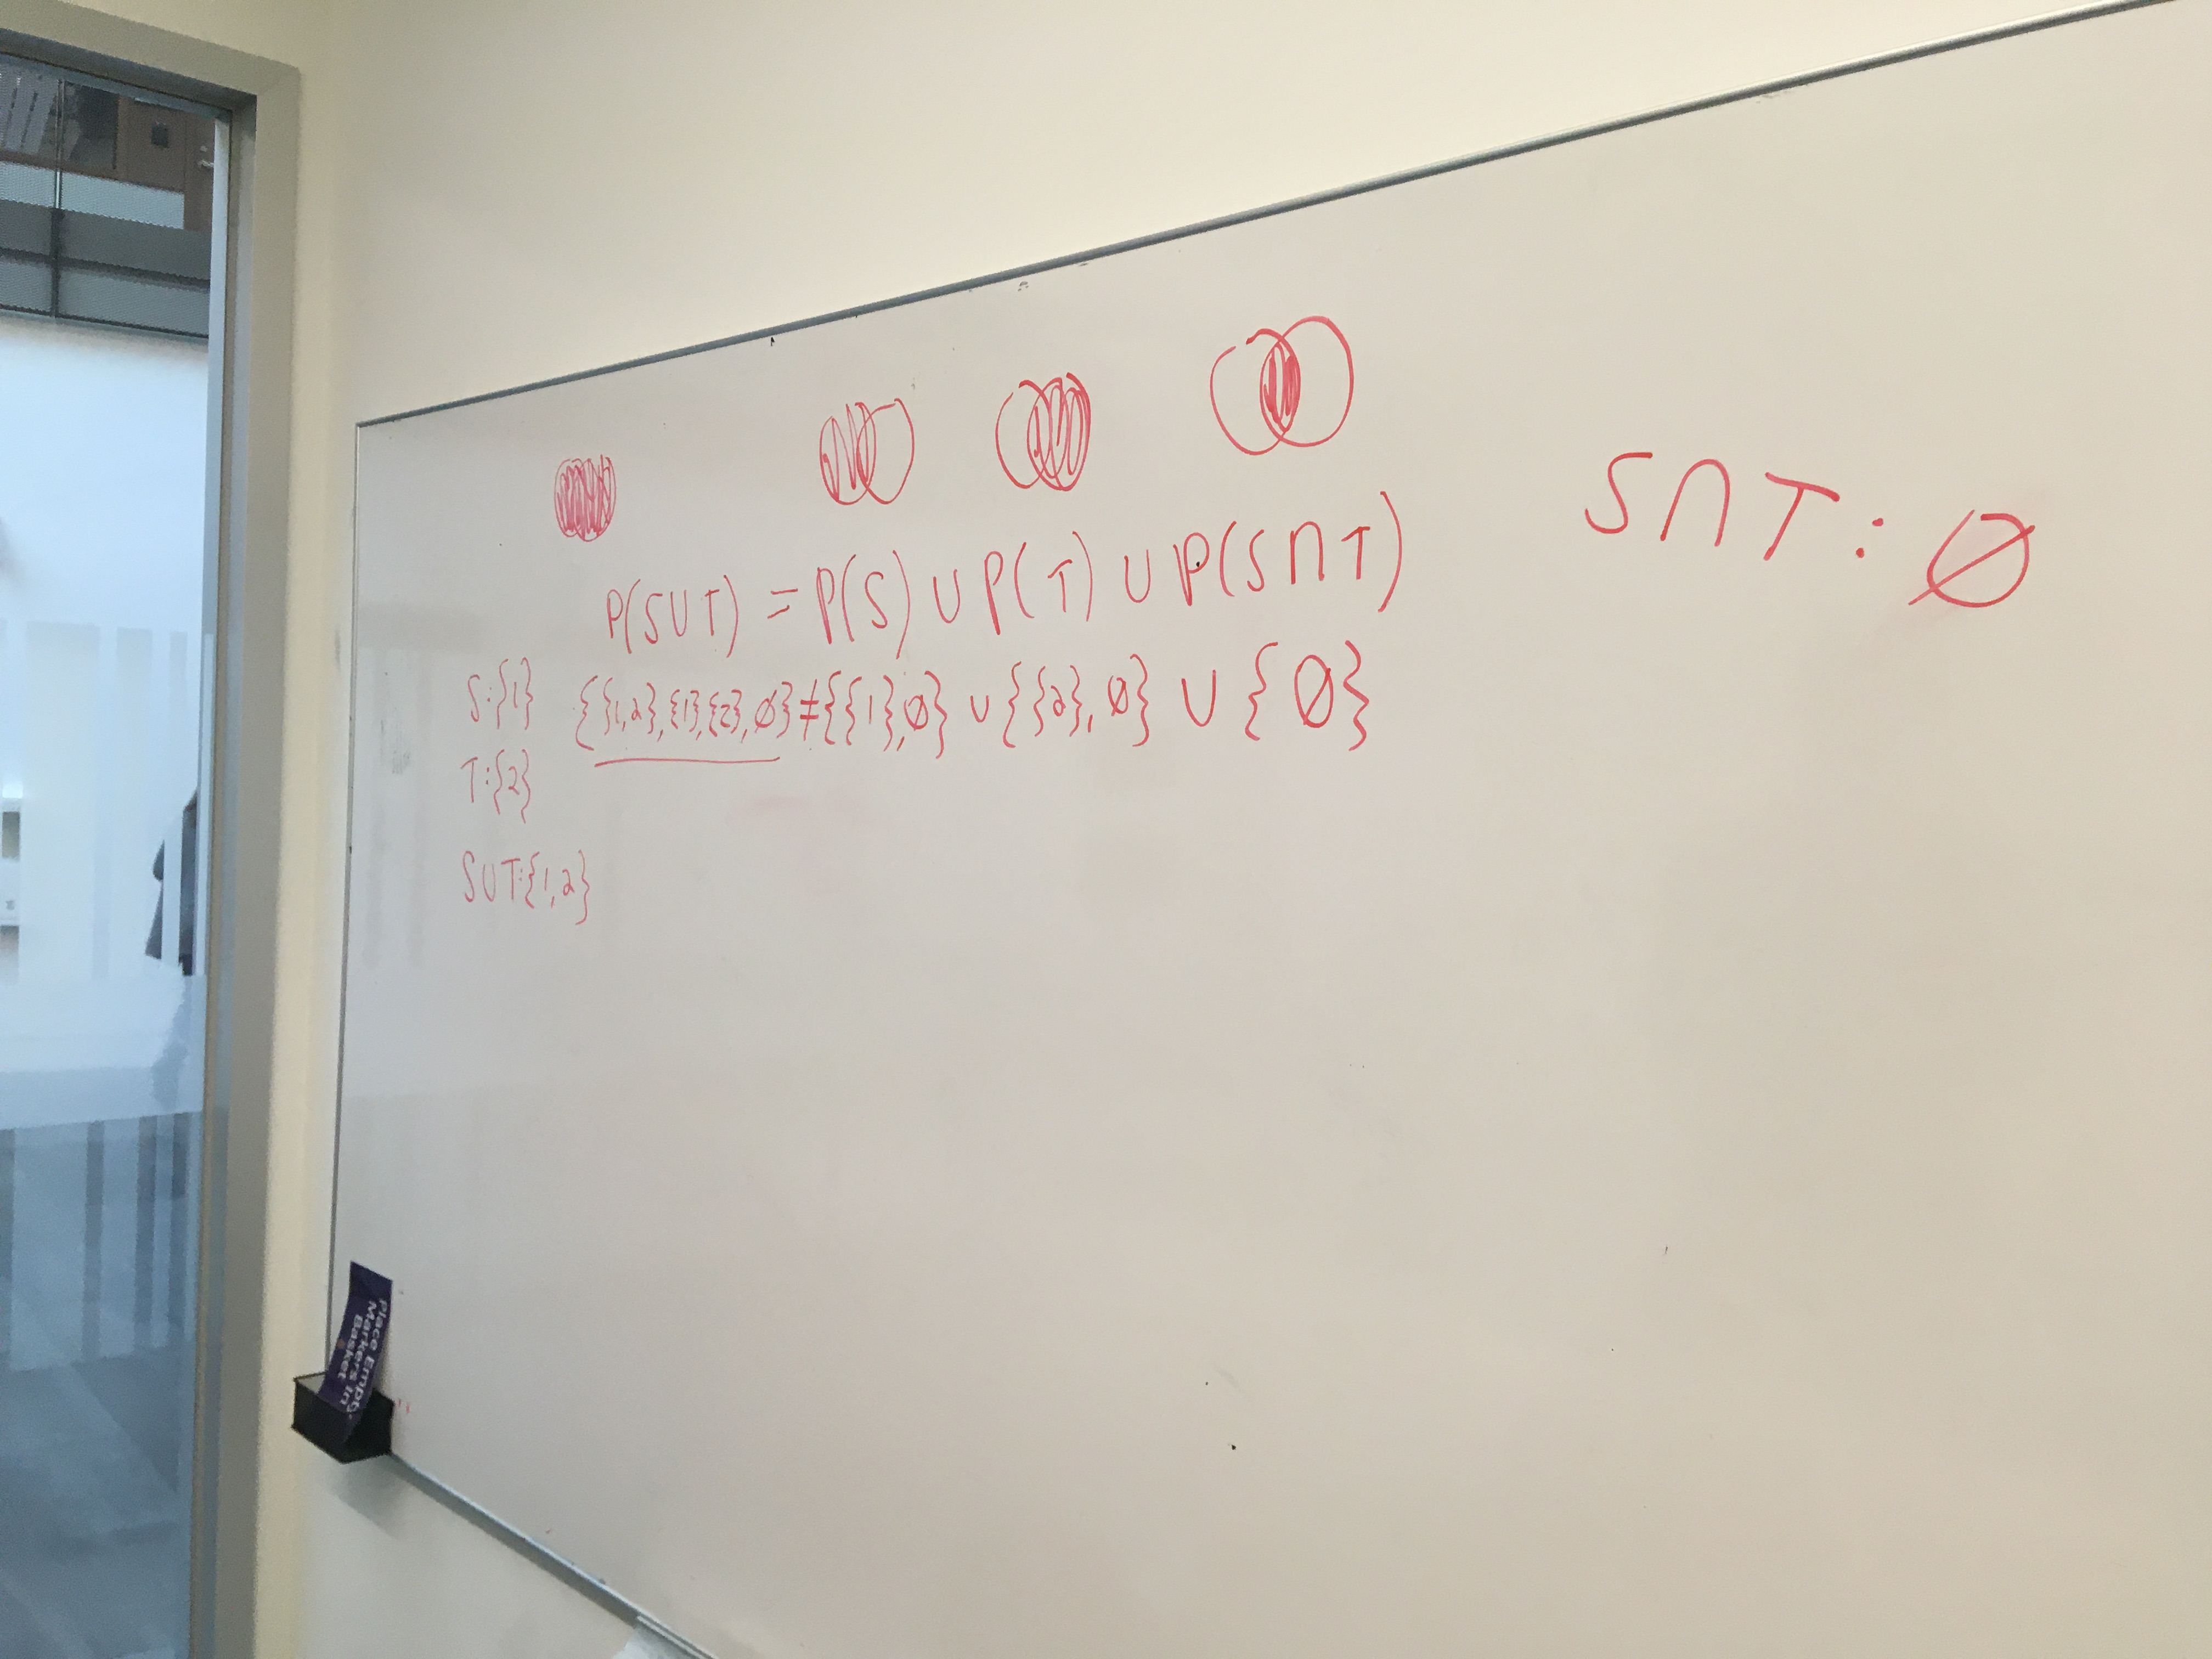 P(S∪T) = P(S) ∪ P(T) ∪ P(S∩T)
S∩T: ∅
S:{1} {{1,2},{1},{2},∅} ≠ {{1},∅} ∪ {{2},∅} ∪ {∅}
T:{2}
S∪T:{1,2}
Place Empty
Markers In
Basket